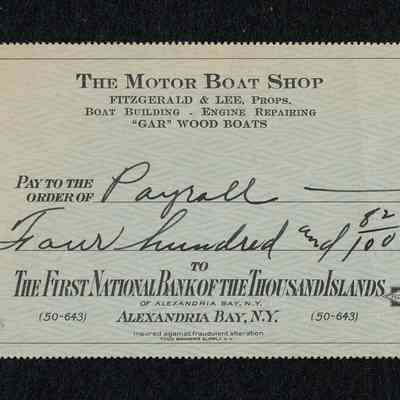 THE MOTOR BOAT SHOP
FITZGERALD & LEE, PROPS.
BOAT BUILDING - ENGINE REPAIRING
"GAR" WOOD BOATS
PAY TO THE
ORDER OF Payroll
Four hundred and 82/100
TO
THE FIRST NATIONAL BANK OF THE THOUSAND ISLANDS
OF ALEXANDRIA BAY, N.Y.
(50-643) ALEXANDRIA BAY, N.Y. (50-643)
Insured against fraudulent alteration